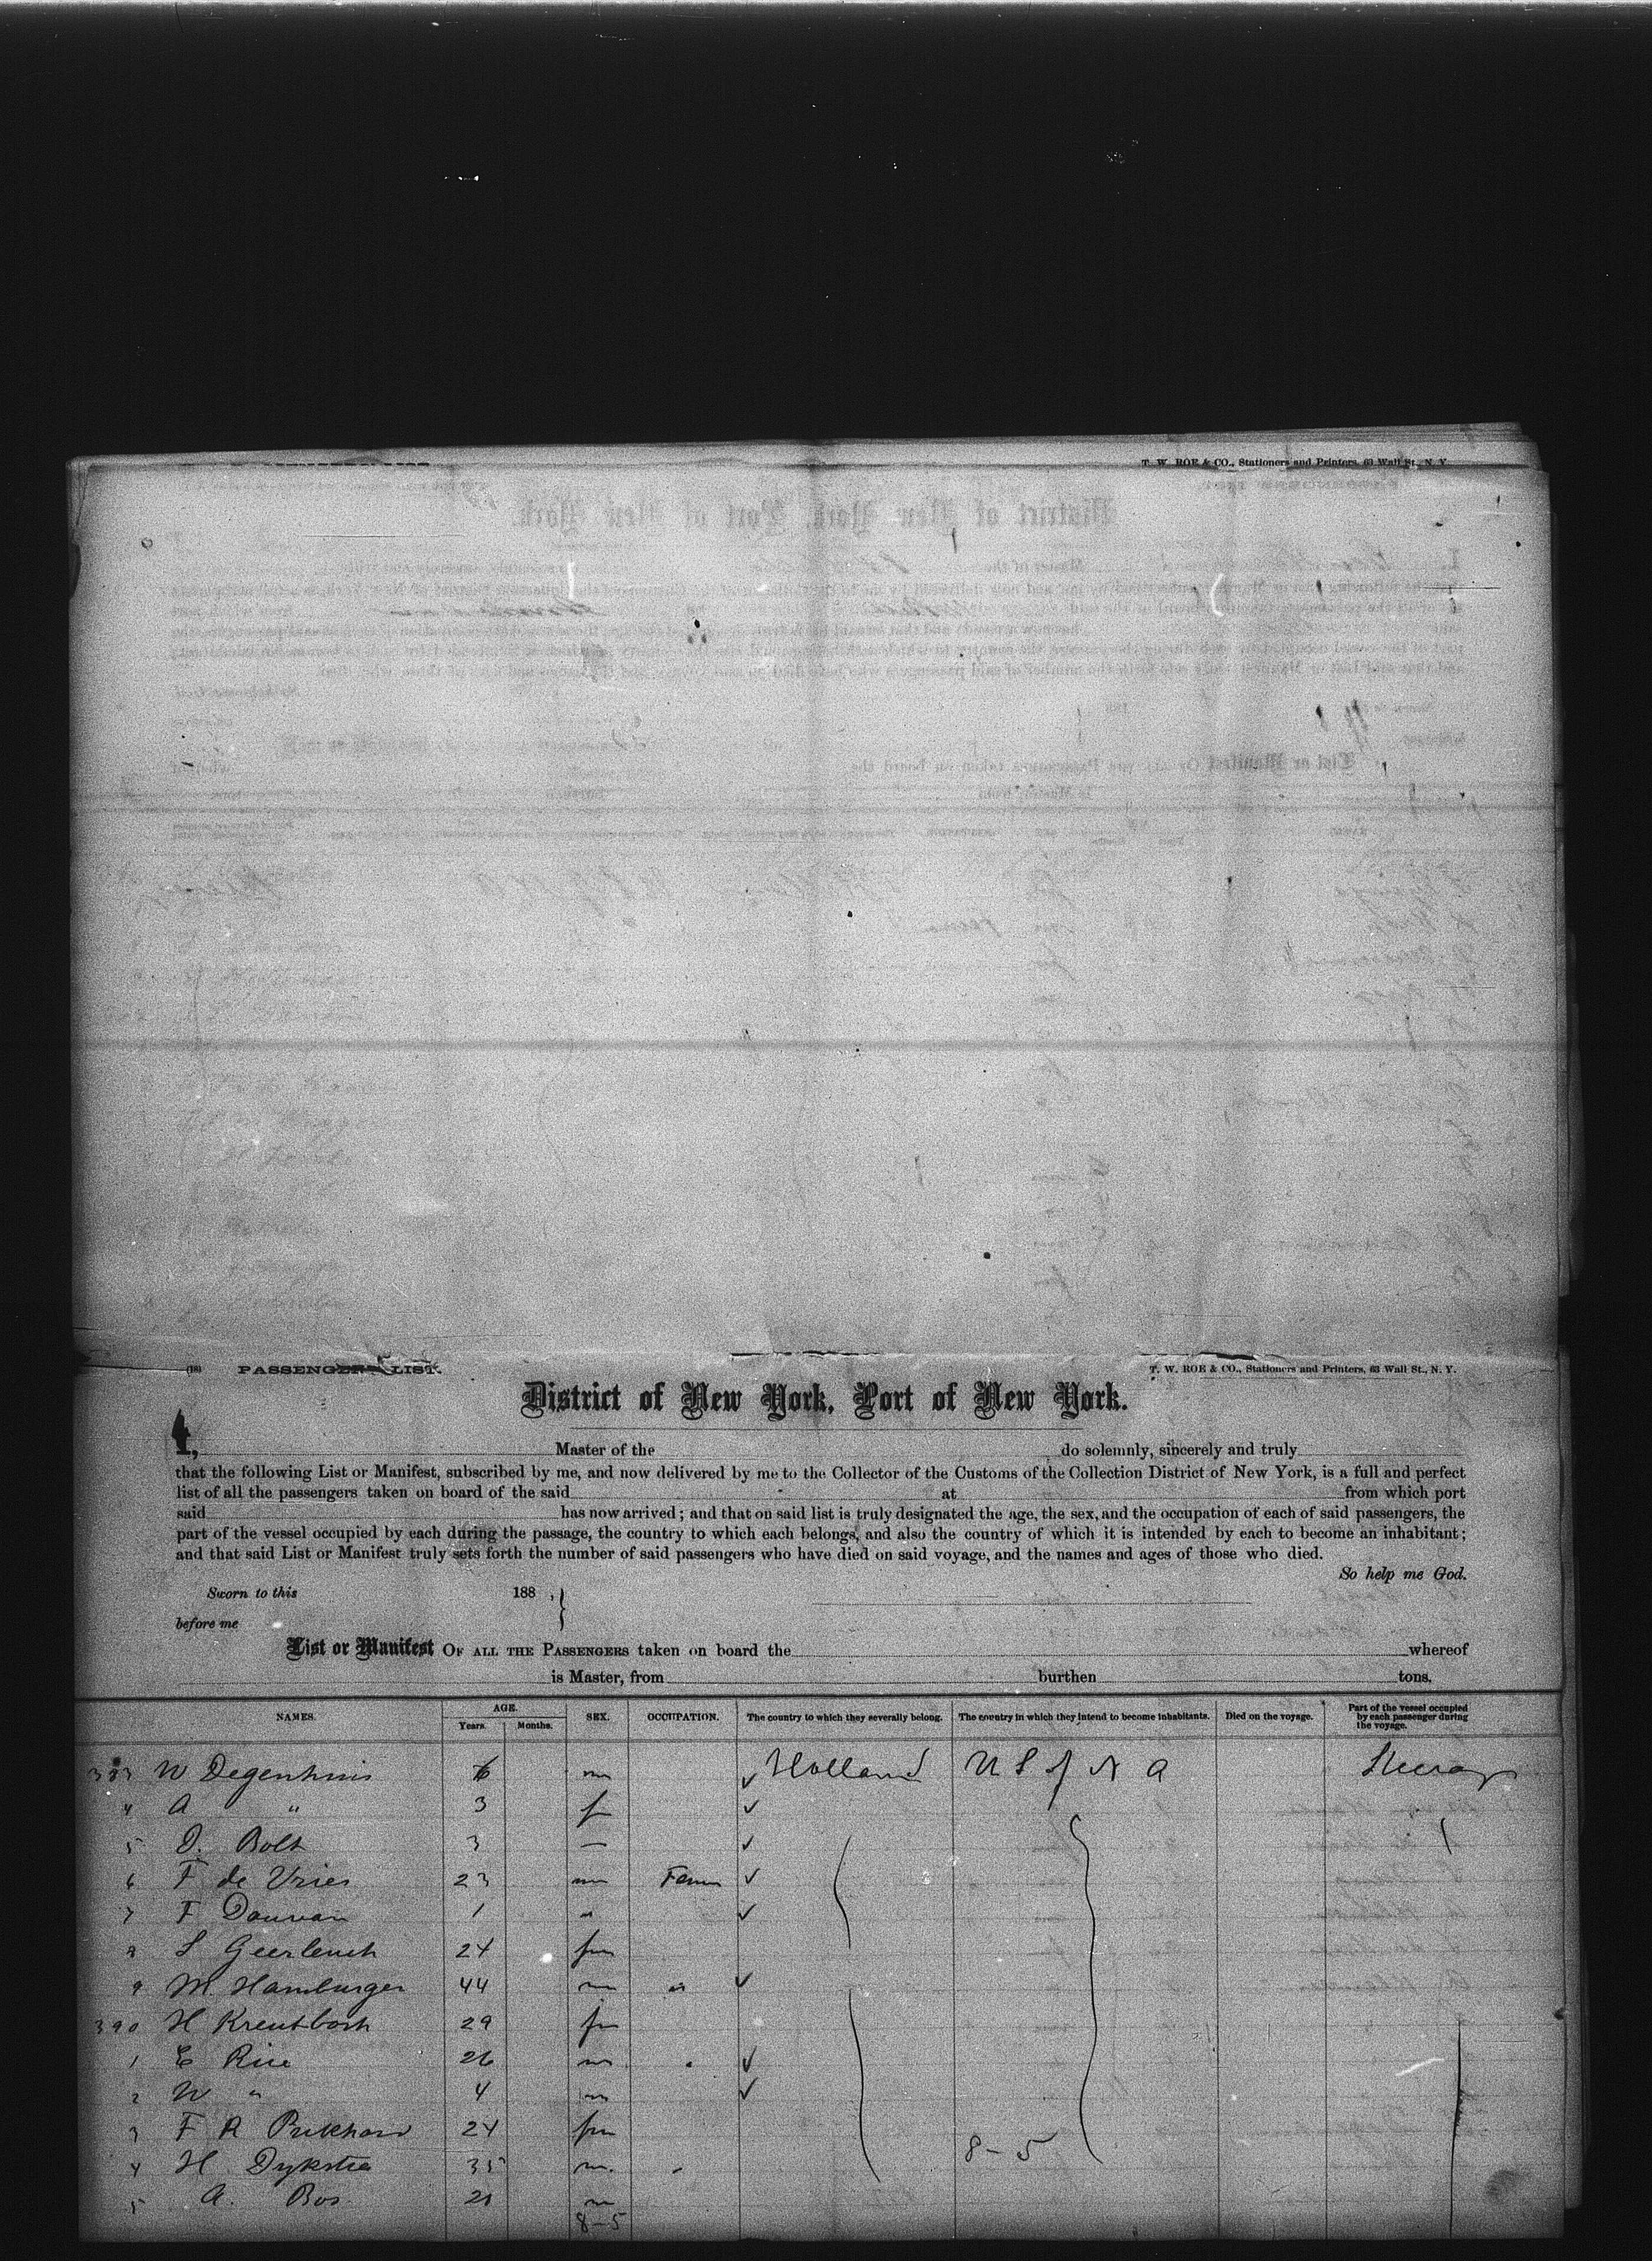 T. W. ROE & CO., Stationers and Printers, 63 Wall St., N. Y.
(18) PASSENGERS LIST. T. W. ROE & CO., Stationers and Printers, 63 Wall St., N. Y.
District of New York, Port of New York.
I, Master of the do solemnly, sincerely and truly
that the following List or Manifest, subscribed by me, and now delivered by me to the Collector of the Customs of the Collection District of New York, is a full and perfect
list of all the passengers taken on board of the said at from which port
said has now arrived; and that on said list is truly designated the age, the sex, and the occupation of each of said passengers, the
part of the vessel occupied by each during the passage, the country to which each belongs, and also the country of which it is intended by each to become an inhabitant;
and that said List or Manifest truly sets forth the number of said passengers who have died on said voyage, and the names and ages of those who died.
So help me God.
Sworn to this 188 , }
before me
List or Manifest OF ALL THE PASSENGERS taken on board the whereof
is Master, from burthen tons.
NAMES. AGE. Years. Months. SEX. OCCUPATION. The country to which they severally belong. The country in which they intend to become inhabitants. Died on the voyage. Part of the vessel occupied by each passenger during the voyage.
383 W Degenhuis 6 m Holland U S of N A Steerage
4 A " 3 f
5 D. Bolt 3 —
6 F de Vries 23 m Farm
7 F Douwan 1 "
8 S Geerlench 24 fm
9 M. Hamburger 44 m "
390 H Kreutbosh 29 fm
1 E Rice 26 m "
2 W " 4 m
3 F R 24 fm
4 H Dykstra 35 m. "
8-5
5 A. Bos 21 m
8-5